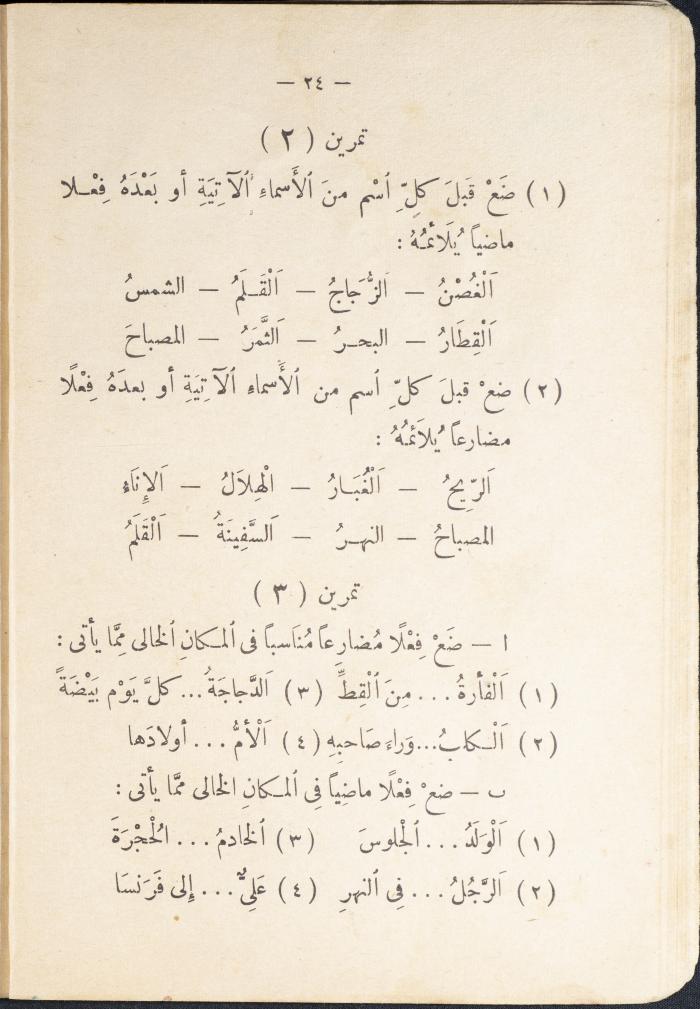 — ٢٤ —
تمرين ( ٢ )
( ١ ) ضَعْ قَبلَ كلِّ ٱسْم منَ ٱلْأَسماءِ ٱلْآتِيَةِ أو بَعْدَهُ فِعْلا
ماضياً يُلَائمُهُ :
اَلْغُصْنُ — اَلزُّجَاجُ — اَلْقَلَمُ — الشمسُ
اَلْقِطَارُ — البحرُ — اَلثَّمَرُ — المصباحَ
( ٢ ) ضعْ قبلَ كلِّ ٱسم من ٱلْأَسماءِ ٱلْآتِيَةِ أو بعدَهُ فِعْلًا
مضارعاً يُلَائمُهُ :
اَلرِّيحُ — اَلْغُبَارُ — اَلْهِلَالُ — اَلإِنَاءُ
المصباحُ — النهرُ — اَلسَّفِينَةُ — اَلْقَلَمُ
تمرين ( ٣ )
ا — ضَعْ فِعْلًا مُضارِعاً مُنَاسباً فى ٱلمكانِ ٱلخالى مِمَّا يأتى :
( ١ ) اَلْفأرةُ . . . مِنَ ٱلْقِطِّ ( ٣ ) اَلدَّجاجَةُ . . . كلَّ يَوْم بَيْضَةً
( ٢ ) اَلْكلبُ . . . وَراءَ صَاحبِهِ ( ٤ ) اَلْأمُّ . . . أولادَها
ب — ضعْ فِعْلًا ماضِياً فِى ٱلمكانِ الخالى ممَّا يأتى :
( ١ ) اَلْوَلَدُ . . . ٱلْجلوسَ ( ٣ ) اَلخادمُ . . . الْحُجْرَةَ
( ٢ ) اَلرَّجُلُ . . . فِى ٱلنهرِ ( ٤ ) عَلِىٌّ . . . إِلى فَرَنسَا